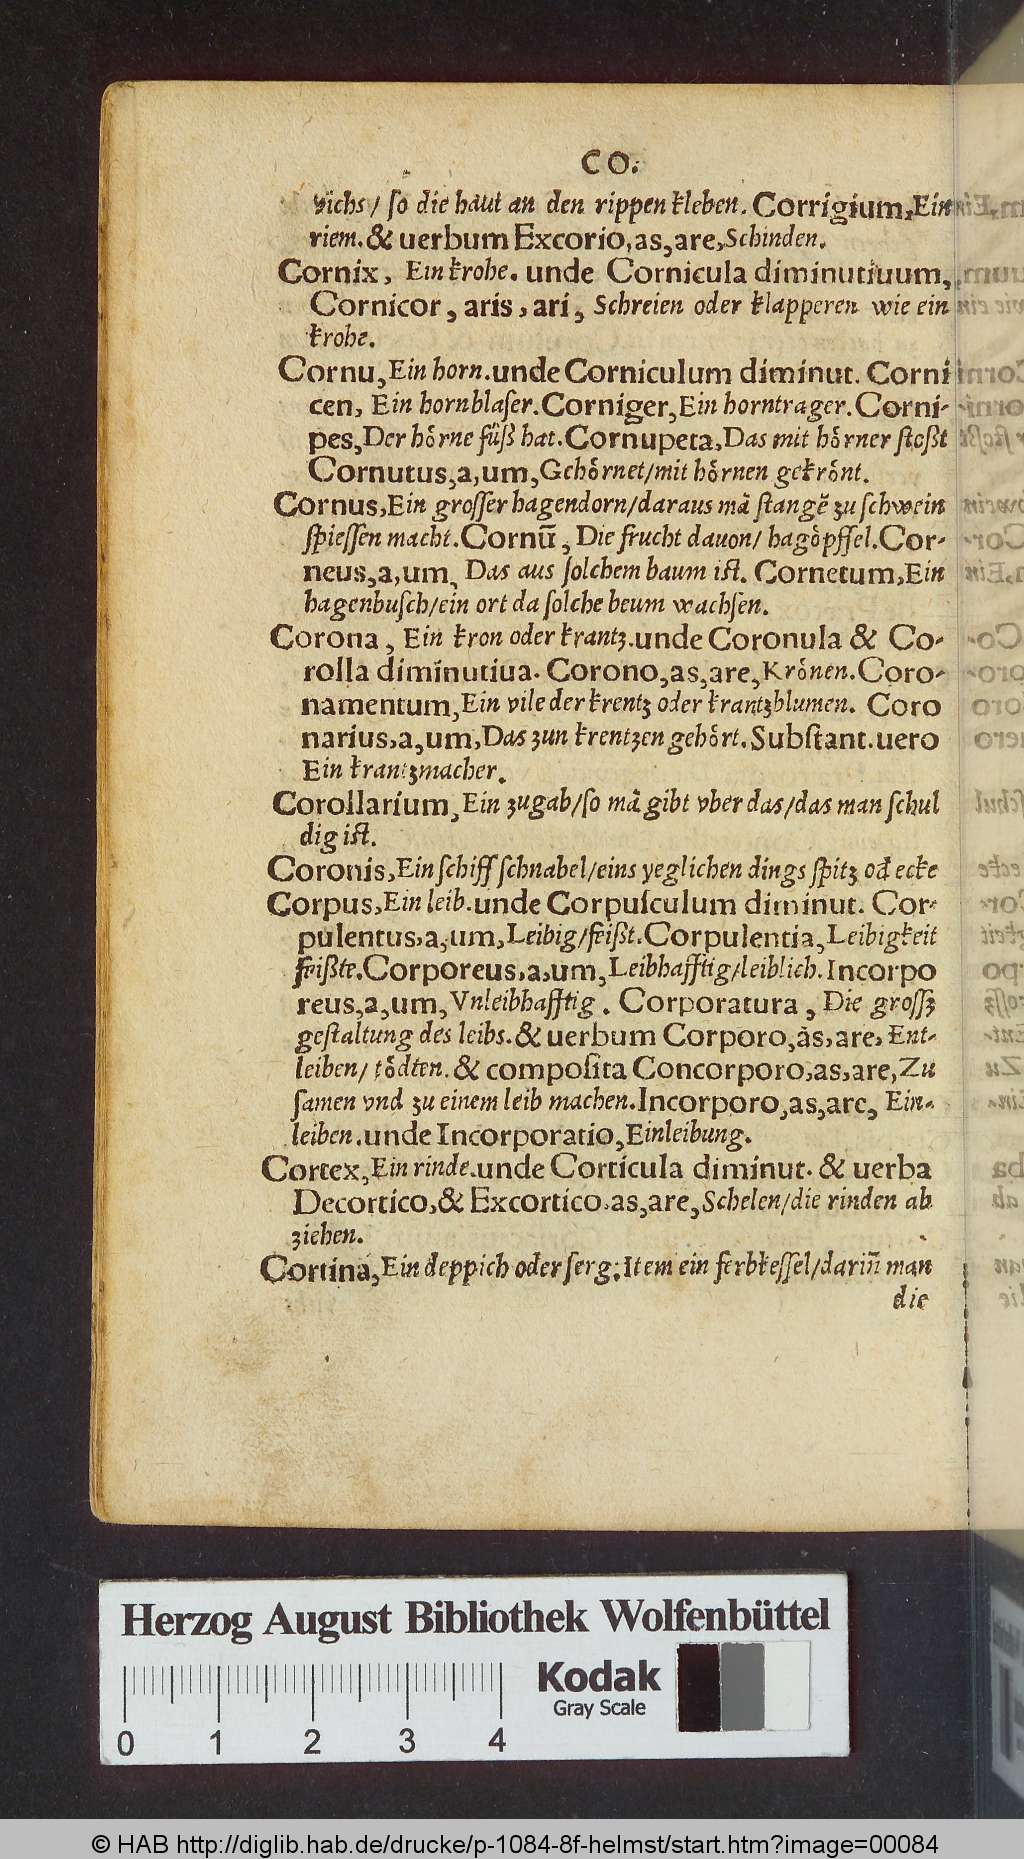 CO.
vichs/ so die haut an den rippen kleben. Corrigium, Ein
riem. & uerbum Excorio, as, are, Schinden.
Cornix, Ein krohe. unde Cornicula diminutiuum,
Cornicor, aris, ari, Schreien oder klapperen wie ein
krohe.
Cornu, Ein horn. unde Corniculum diminut. Corni
cen, Ein hornblaser. Corniger, Ein horntrager. Corni-
pes, Der hoͤrne fuͤß hat. Cornupeta, Das mit hoͤrner stoßt
Cornutus, a, um, Gehoͤrnet/mit hoͤrnen gekroͤnt.
Cornus, Ein grosser hagendorn/daraus mã stangẽ zu schwein
spiessen macht. Cornũ, Die frucht dauon/ hagoͤpffel. Cor-
neus, a, um, Das aus solchem baum ist. Cornetum, Ein
hagenbusch/ein ort da solche beum wachsen.
Corona, Ein kron oder krantz. unde Coronula & Co-
rolla diminutiua. Corono, as, are, Kroͤnen. Coro-
namentum, Ein vile der krentz oder krantzblumen. Coro
narius, a, um, Das zun krentzen gehoͤrt. Substant. uero
Ein krantzmacher.
Corollarium, Ein zugab/so mã gibt vber das/das man schul
dig ist.
Coronis, Ein schiff schnabel/eins yeglichen dings spitz od ecke
Corpus, Ein leib. unde Corpusculum diminut. Cor-
pulentus, a, um, Leibig/feißt. Corpulentia, Leibigkeit
feißte. Corporeus, a, um, Leibhafftig/leiblich. Incorpo
reus, a, um, Vnleibhafftig. Corporatura, Die grossz
gestaltung des leibs. & uerbum Corporo, ãs, are, Ent-
leiben/ toͤdten. & composita Concorporo, as, are, Zu
samen vnd zu einem leib machen. Incorporo, as, are, Ein-
leiben. unde Incorporatio, Einleibung.
Cortex, Ein rinde. unde Corticula diminut. & uerba
Decortico, & Excortico, as, are, Schelen/die rinden ab
ziehen.
Cortina, Ein deppich oder serg: Item ein ferbkessel/dariñ man
die
Herzog August Bibliothek Wolfenbüttel
Kodak
Gray Scale
0 1 2 3 4
© HAB http://diglib.hab.de/drucke/p-1084-8f-helmst/start.htm?image=00084